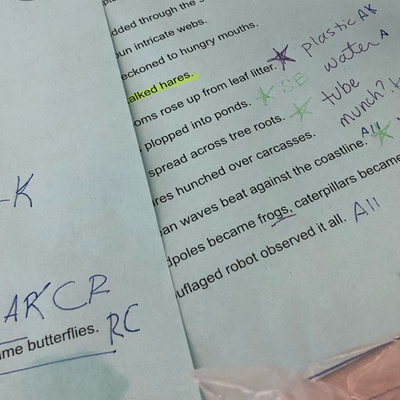 dded through the
un intricate webs.
eckoned to hungry mouths.
alked hares.
oms rose up from leaf litter. plastic AK
plopped into ponds. SE water A
spread across tree roots. tube
res hunched over carcasses. munch?
an waves beat against the coastline. All
dpoles became frogs, caterpillars became
uflaged robot observed it all. All
-K
AR CR
me butterflies. RC